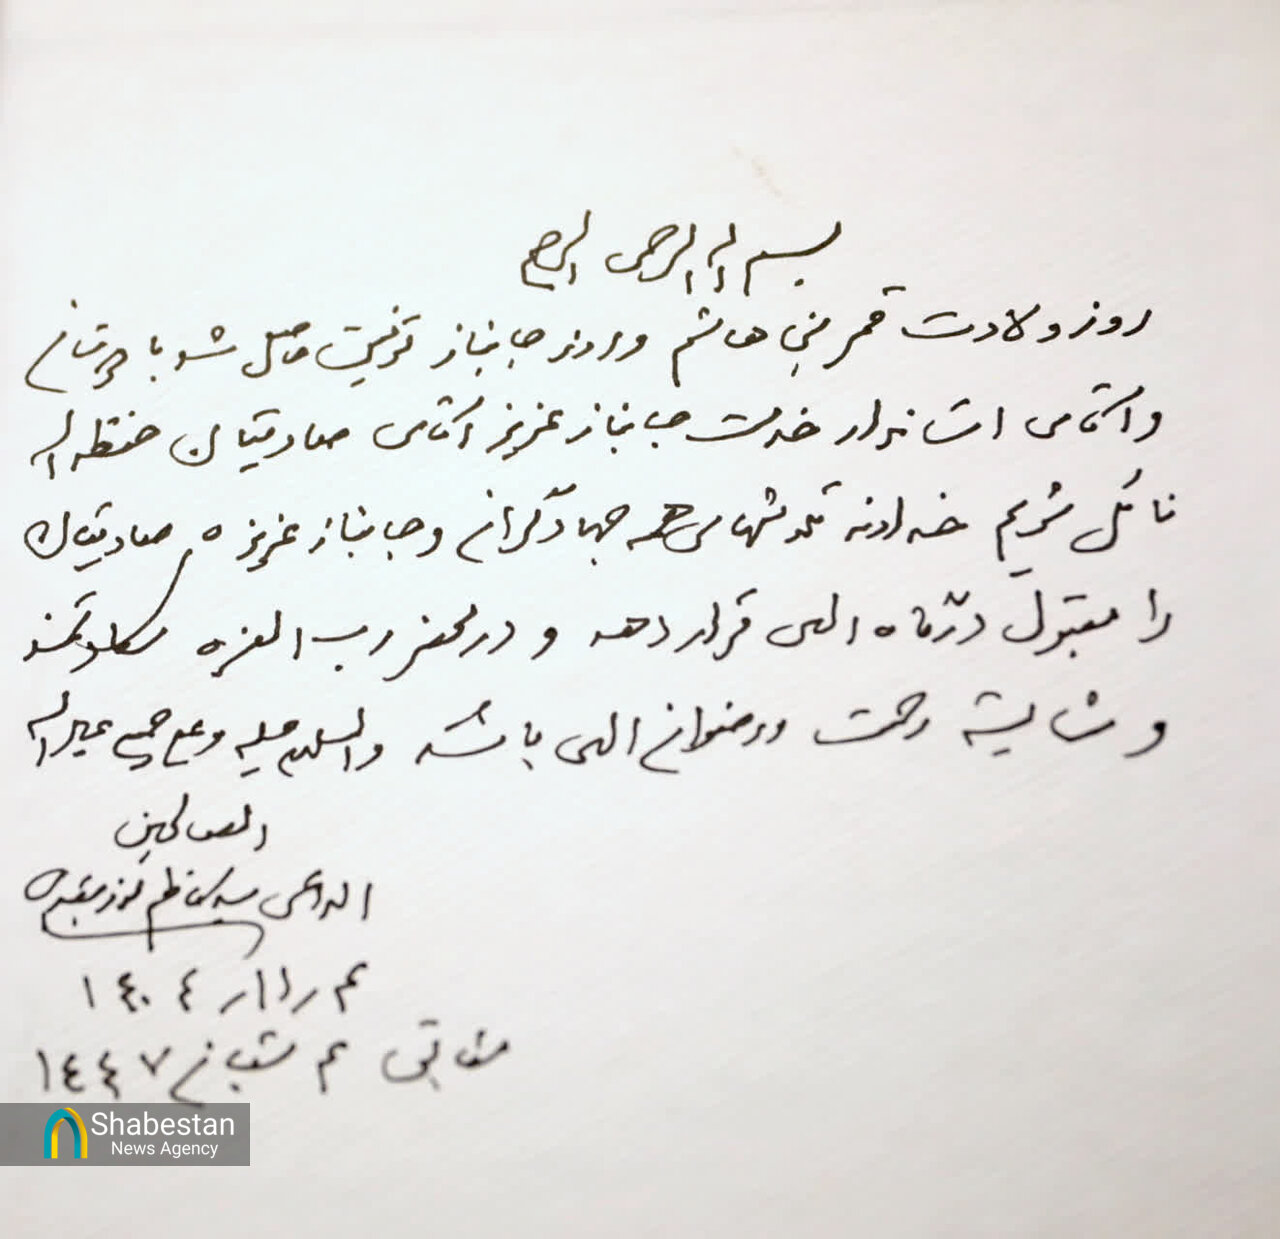 بسم الله الرحمن الرحیم
روز ولادت قمر بنی هاشم و روز جانباز توفیق حاصل شد با
و آقای استاندار خدمت جانباز عزیز آقای صادقیان حفظه الله
نائل شویم خداوند تلاشهای همه جهادگران و جانباز عزیز صادقیان
را مقبول درگاه الهی قرار دهد و در محضر رب العزه
و شایسته رحمت و رضوان الهی باشد والسلام علیه و علی جمیع عبیدالله
الصالحین
الداعی سید کاظم
۴ ۱۱ ۱۴۰۴
۴ شعبان ۱۴۴۷
Shabestan
News Agency